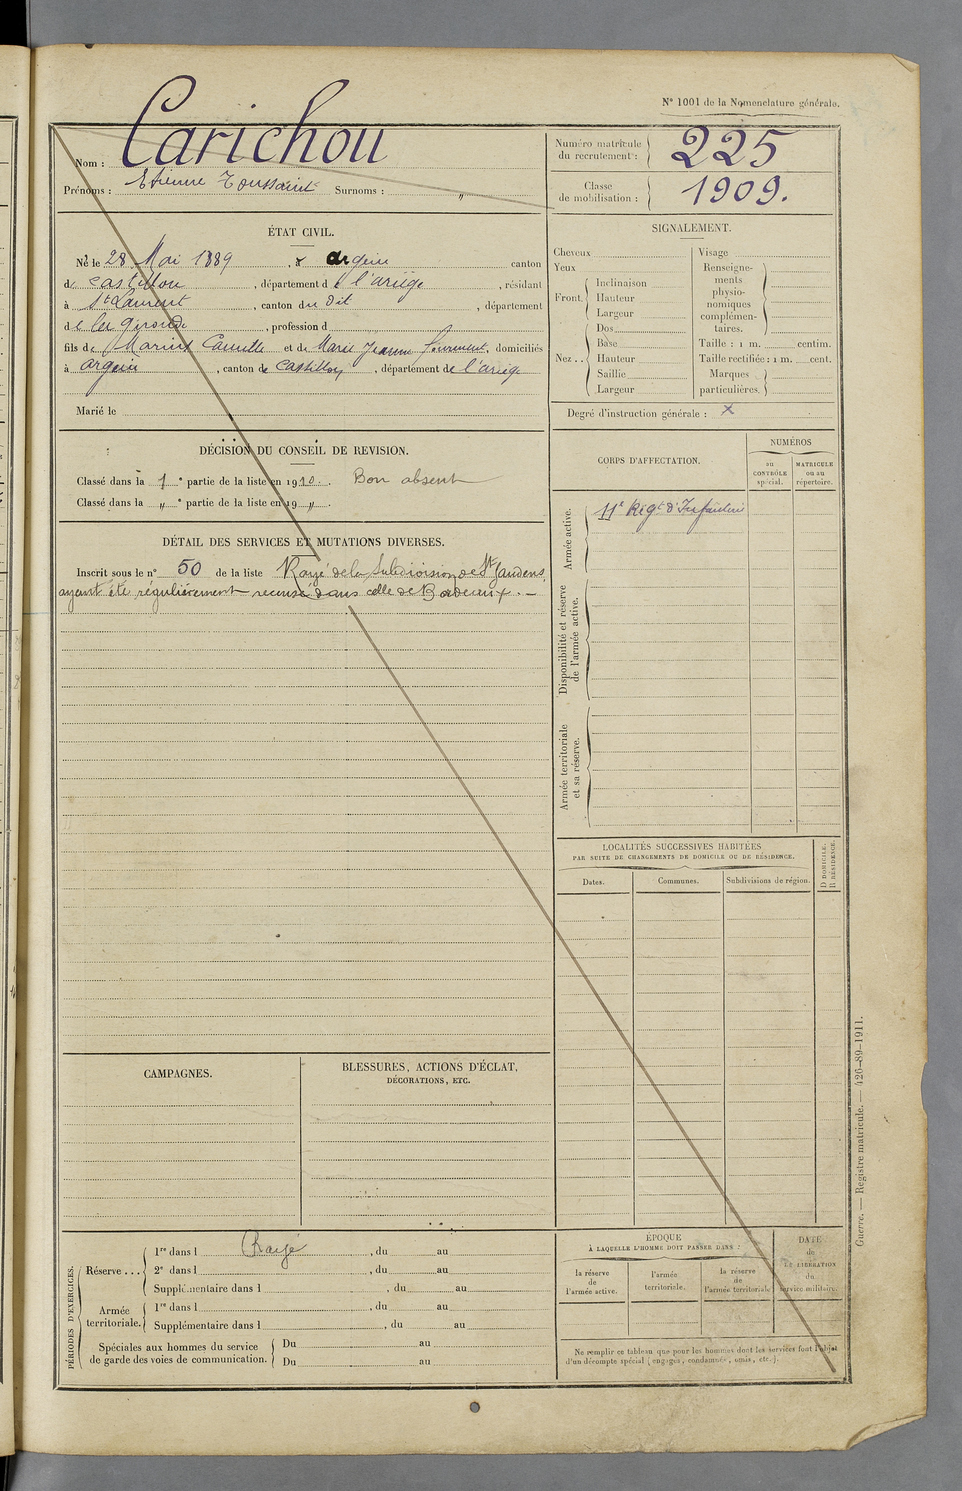 N° 1001 de la Nomenclature générale.
Nom : Carichou
Prénoms : Etienne Toussaint Surnoms : „
Numéro matricule du recrutement : 225
Classe de mobilisation : 1909.
ÉTAT CIVIL.
Né le 28 Mai 1889, à argein canton
de Castillon, département de l'ariège, résidant
à St Laurent, canton du dit, département
de la gironde, profession d
fils de Marius Camille et de Marie Jeanne, domiciliés
à argein, canton de Castillon, département de l'ariège
Marié le
SIGNALEMENT.
Cheveux
Yeux
Front. Inclinaison
Hauteur
Largeur
Nez . . Dos
Base
Hauteur
Saillie
Largeur
Visage
Renseigne-
ments
physio-
nomiques
complémen-
taires.
Taille : 1 m. centim.
Taille rectifiée : 1 m. cent.
Marques
particulières.
Degré d'instruction générale : x
DÉCISION DU CONSEIL DE REVISION.
Classé dans la 1e partie de la liste en 1910. Bon absent
Classé dans la „ e partie de la liste en 19 „.
DÉTAIL DES SERVICES ET MUTATIONS DIVERSES.
Inscrit sous le n° 50 de la liste Rayé de la Subdivision de St Gaudens,
ayant été régulièrement recensé dans celle de Bordeaux. —
CORPS D'AFFECTATION.
NUMÉROS
au
CONTRÔLE
spécial.
MATRICULE
ou au
répertoire.
Armée active.
11e Rég t d'Infanterie
Disponibilité et réserve
de l'armée active.
Armée territoriale
et sa réserve.
LOCALITÉS SUCCESSIVES HABITÉES
PAR SUITE DE CHANGEMENTS DE DOMICILE OU DE RÉSIDENCE.
D DOMICILE.
R RÉSIDENCE.
Dates.
Communes.
Subdivisions de région.
CAMPAGNES.
BLESSURES, ACTIONS D'ÉCLAT,
DÉCORATIONS, ETC.
PÉRIODES D'EXERCICES.
Réserve . . . 1re dans l Rayé, du au
2e dans l , du au
Supplémentaire dans l , du au
Armée
territoriale. 1re dans l , du au
Supplémentaire dans l , du au
Spéciales aux hommes du service
de garde des voies de communication.
Du au
Du au
ÉPOQUE
À LAQUELLE L'HOMME DOIT PASSER DANS :
la réserve
de
l'armée active.
l'armée
territoriale.
la réserve
de
l'armée territoriale
DATE
de
LA LIBÉRATION
du
service militaire.
Ne remplir ce tableau que pour les hommes dont les services font l'objet
d'un décompte spécial (engagés, condamnés, omis, etc.).
Guerre. — Registre matricule. — 426-89-1911.